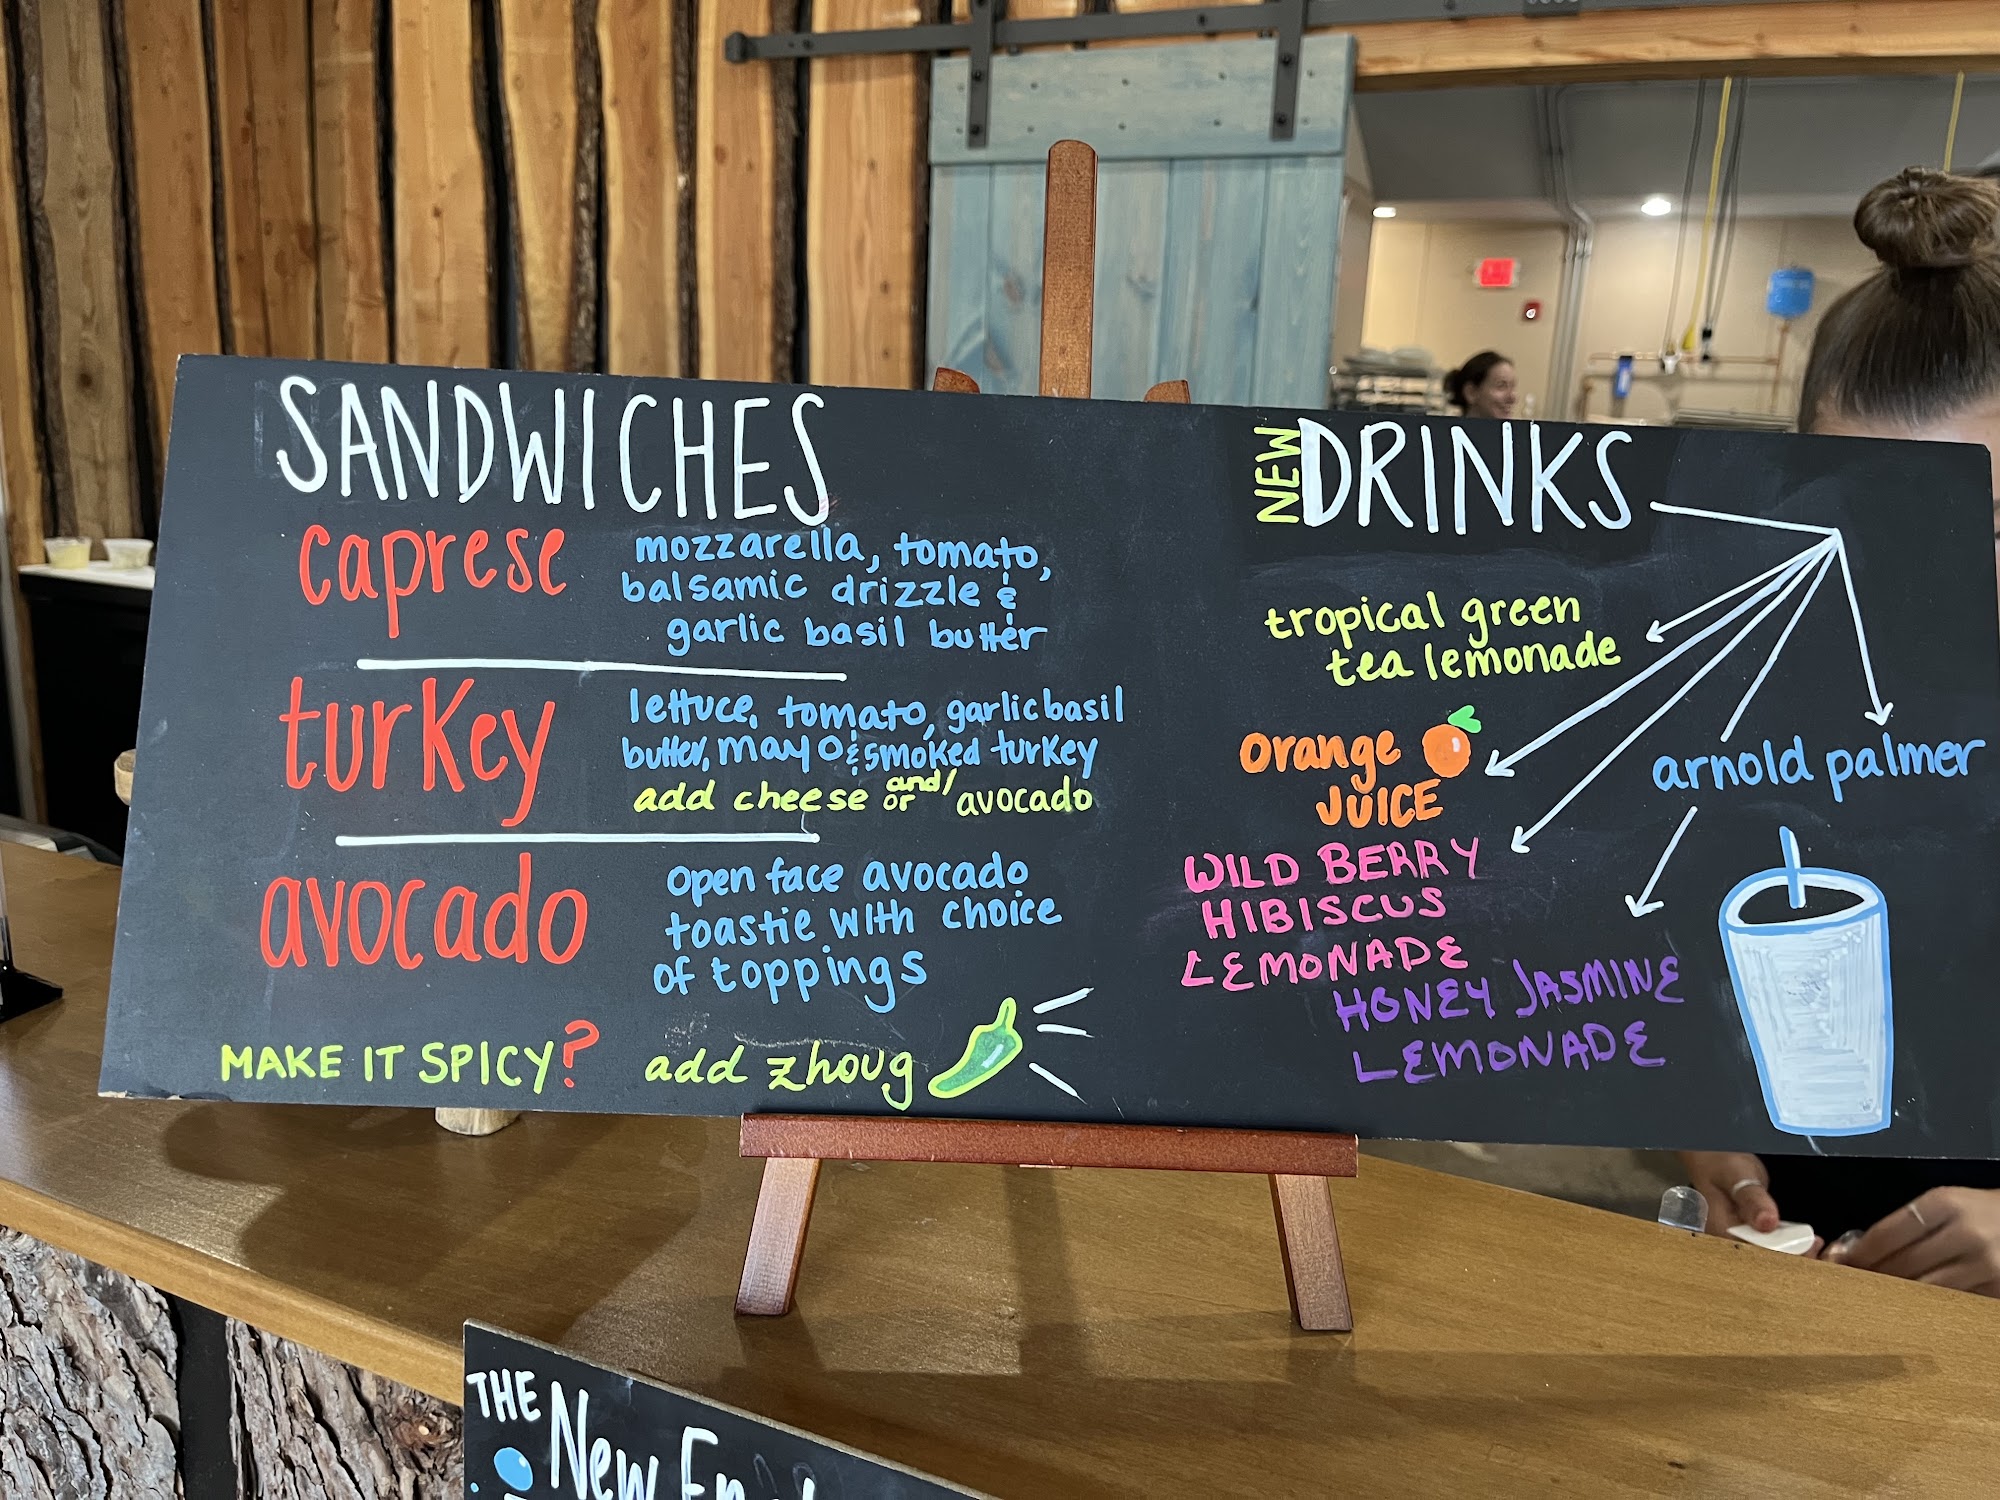 SANDWICHES
caprese
mozzarella, tomato,
balsamic drizzle &
garlic basil butter
turkey
lettuce, tomato, garlic basil
butter, mayo & smoked turkey
add cheese and/or avocado
avocado
open face avocado
toastie with choice
of toppings
MAKE IT SPICY? add zhoug
NEW DRINKS
tropical green
tea lemonade
orange
JUICE
arnold palmer
WILD BERRY
HIBISCUS
LEMONADE
HONEY JASMINE
LEMONADE
THE
New